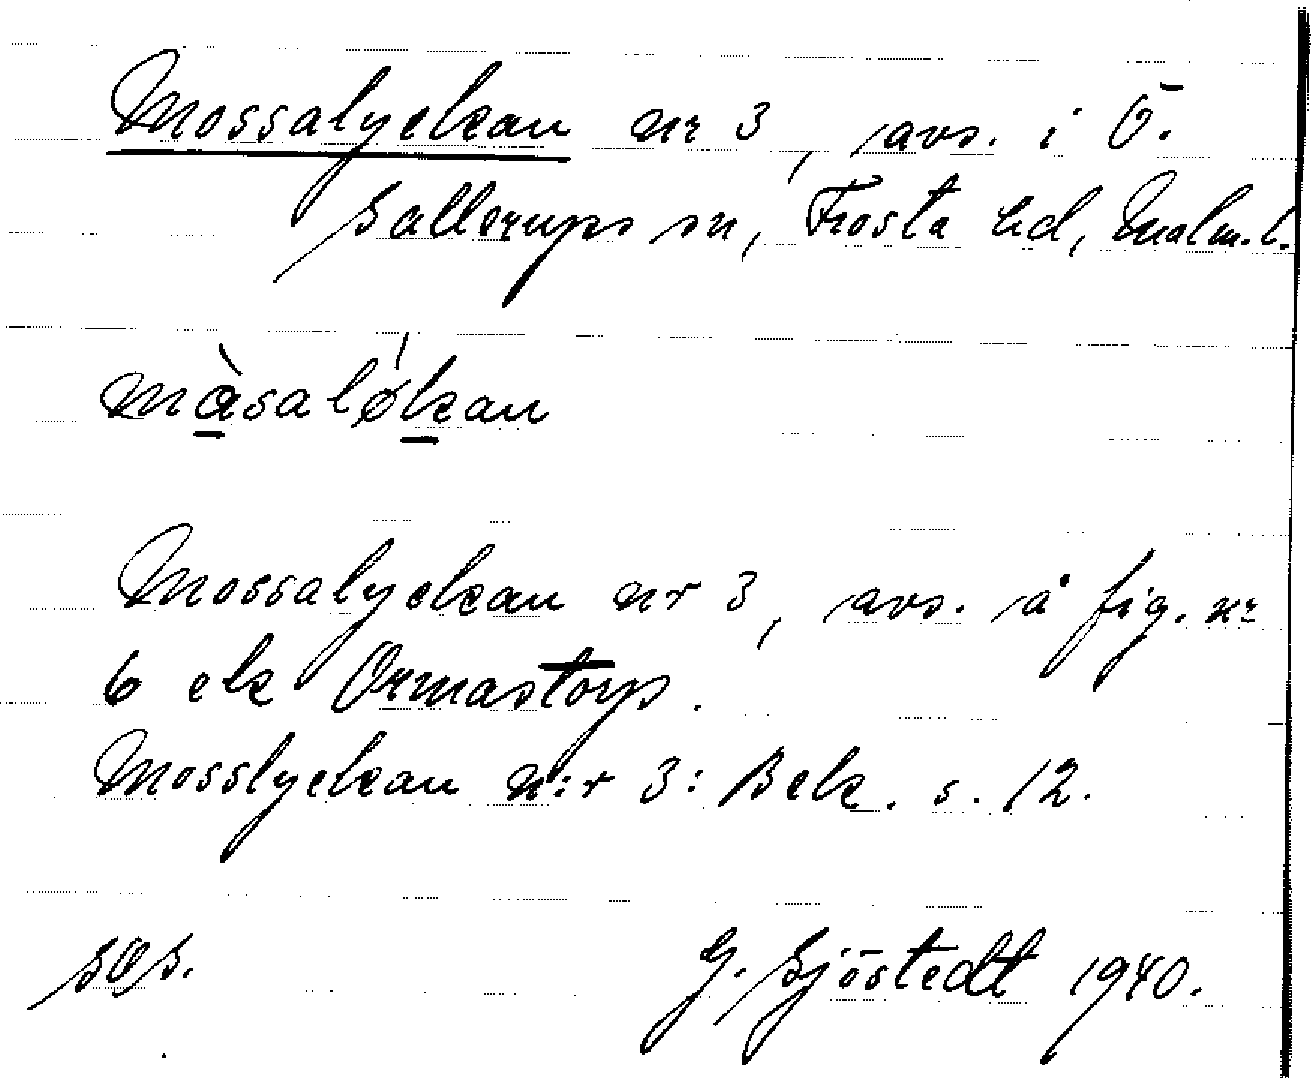 Mossalyckan nr 3, avs. i Ö.
Sallerups sn, Frosta hd, Malm. l.
màsalǿkan
Mossalyckan nr 3, avs. å fig. nr
6 ek Ormastorp.
Mosslyckan n:r 3: Bek. s. 12.
G. Sjöstedt 1940.